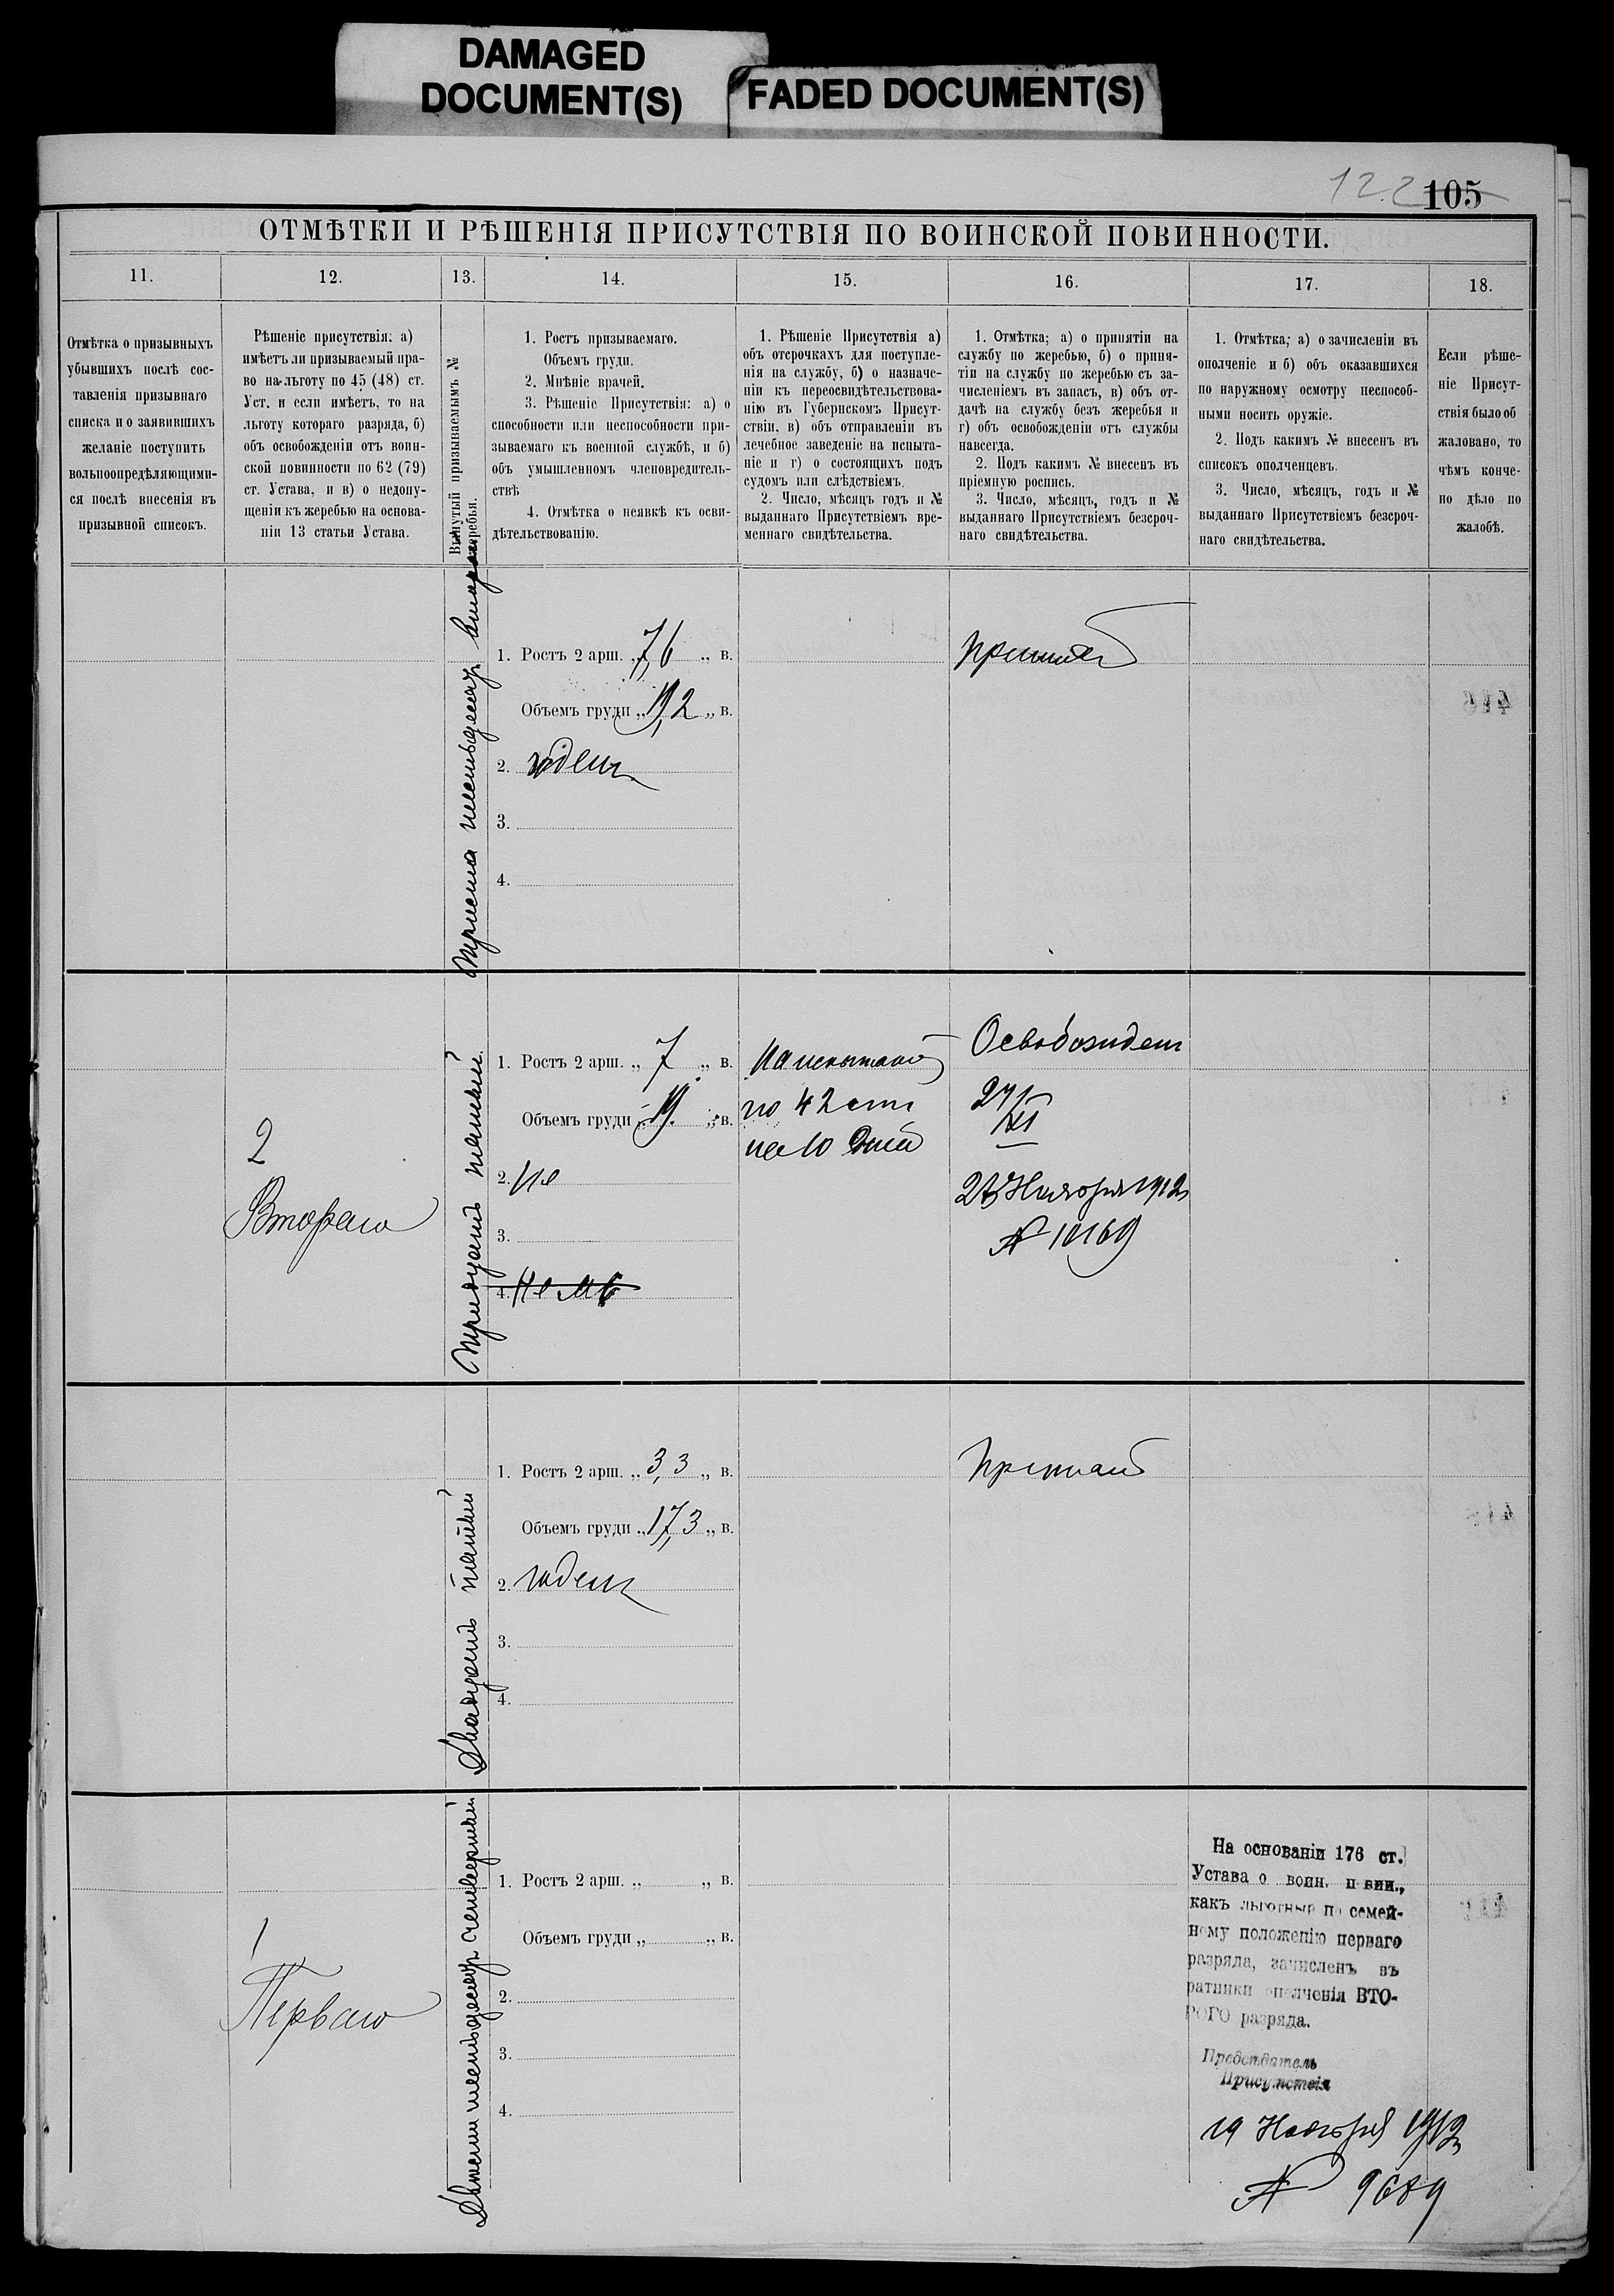 DAMAGED
DOCUMENT(S)
FADED DOCUMENT(S)
122
105
ОТМѢТКИ И РѢШЕНІЯ ПРИСУТСТВІЯ ПО ВОИНСКОЙ ПОВИННОСТИ.
11.
12.
13.
14.
15.
16.
17.
18.
Отмѣтка о призывныхъ
убывшихъ послѣ сос-
тавленія призывнаго
списка и о заявившихъ
желаніе поступить
вольноопредѣляющими-
ся послѣ внесенія въ
призывной списокъ.
Рѣшеніе присутствія: а)
имѣетъ ли призываемый пра-
во на льготу по 45 (48) ст.
Уст. и если имѣетъ, то на
льготу котораго разряда, б)
объ освобожденіи отъ воин-
ской повинности по 62 (79)
ст. Устава, и в) о недопу-
щеніи къ жеребью на основа-
ніи 13 статьи Устава.
Вынутый призываемымъ №
жеребья.
1. Ростъ призываемаго.
Объемъ груди.
2. Мнѣніе врачей.
3. Рѣшеніе Присутствія: а) о
способности или неспособности при-
зываемаго къ военной службѣ, и б)
объ умышленномъ членовредитель-
ствѣ
4. Отмѣтка о неявкѣ къ осви-
дѣтельствованію.
1. Рѣшеніе Присутствія а)
объ отсрочкахъ для поступле-
нія на службу, б) о назначе-
ніи къ переосвидѣтельствова-
нію въ Губернскомъ Присут-
ствіи, в) объ отправленіи въ
лечебное заведеніе на испыта-
ніе и г) о состоящихъ подъ
судомъ или слѣдствіемъ.
2. Число, мѣсяцъ годъ и №
выданнаго Присутствіемъ вре-
меннаго свидѣтельства.
1. Отмѣтка; а) о принятіи на
службу по жеребью, б) о приня-
тіи на службу по жеребью съ за-
численіемъ въ запасъ, в) объ от-
дачѣ на службу безъ жеребья и
г) объ освобожденіи отъ службы
навсегда.
2. Подъ какимъ № внесенъ въ
пріемную роспись.
3. Число, мѣсяцъ, годъ и №
выданнаго Присутствіемъ безсроч-
наго свидѣтельства.
1. Отмѣтка; а) о зачисленіи въ
ополченіе и б) объ оказавшихся
по наружному осмотру неспособ-
ными носить оружіе.
2. Подъ какимъ № внесенъ въ
списокъ ополченцевъ.
3. Число, мѣсяцъ, годъ и №
выданнаго Присутствіемъ безсроч-
наго свидѣтельства.
Если рѣше-
ніе Присут-
ствія было об
жаловано, то
чѣмъ конче-
но дѣло по
жалобѣ.
Триста шестьдесят второй
1. Ростъ 2 арш. „ 7,6 „ в.
Объемъ груди „ 19,2 „ в.
2. годенъ
3.
4.
Принятъ
2
Втораго
Тридцать пятый
1. Ростъ 2 арш. „ 7 „ в.
Объемъ груди „ 19. „ в.
2. Не
3.
4.
На испытаніе
по 42 ст
на 10 дней
Освобожденъ
27/XI
27 Ноября 1912
№ 10169
Двадцать пятый
1. Ростъ 2 арш. „ 3,3 „ в.
Объемъ груди „ 17,3 „ в.
2. годенъ
3.
4.
Принятъ
1
Перваго
Двѣсти шестьдесят четвертый
1. Ростъ 2 арш. „ „ в.
Объемъ груди „ „ в.
2.
3.
4.
На основаніи 176 ст.
Устава о воин. повин.,
какъ льготный по семей-
ному положенію перваго
разряда, зачисленъ въ
ратники ополченія ВТО-
РОГО разряда.
Предсѣдатель
Присутствія
19 Ноября 1912
№ 9689